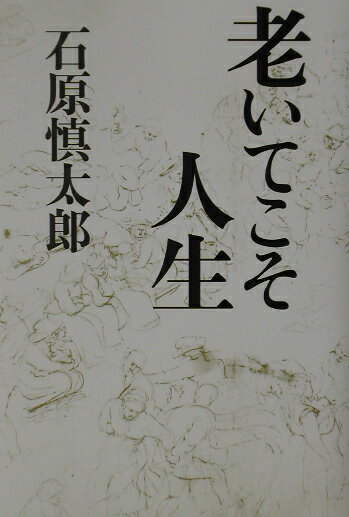 老いてこそ
人生
石原慎太郎